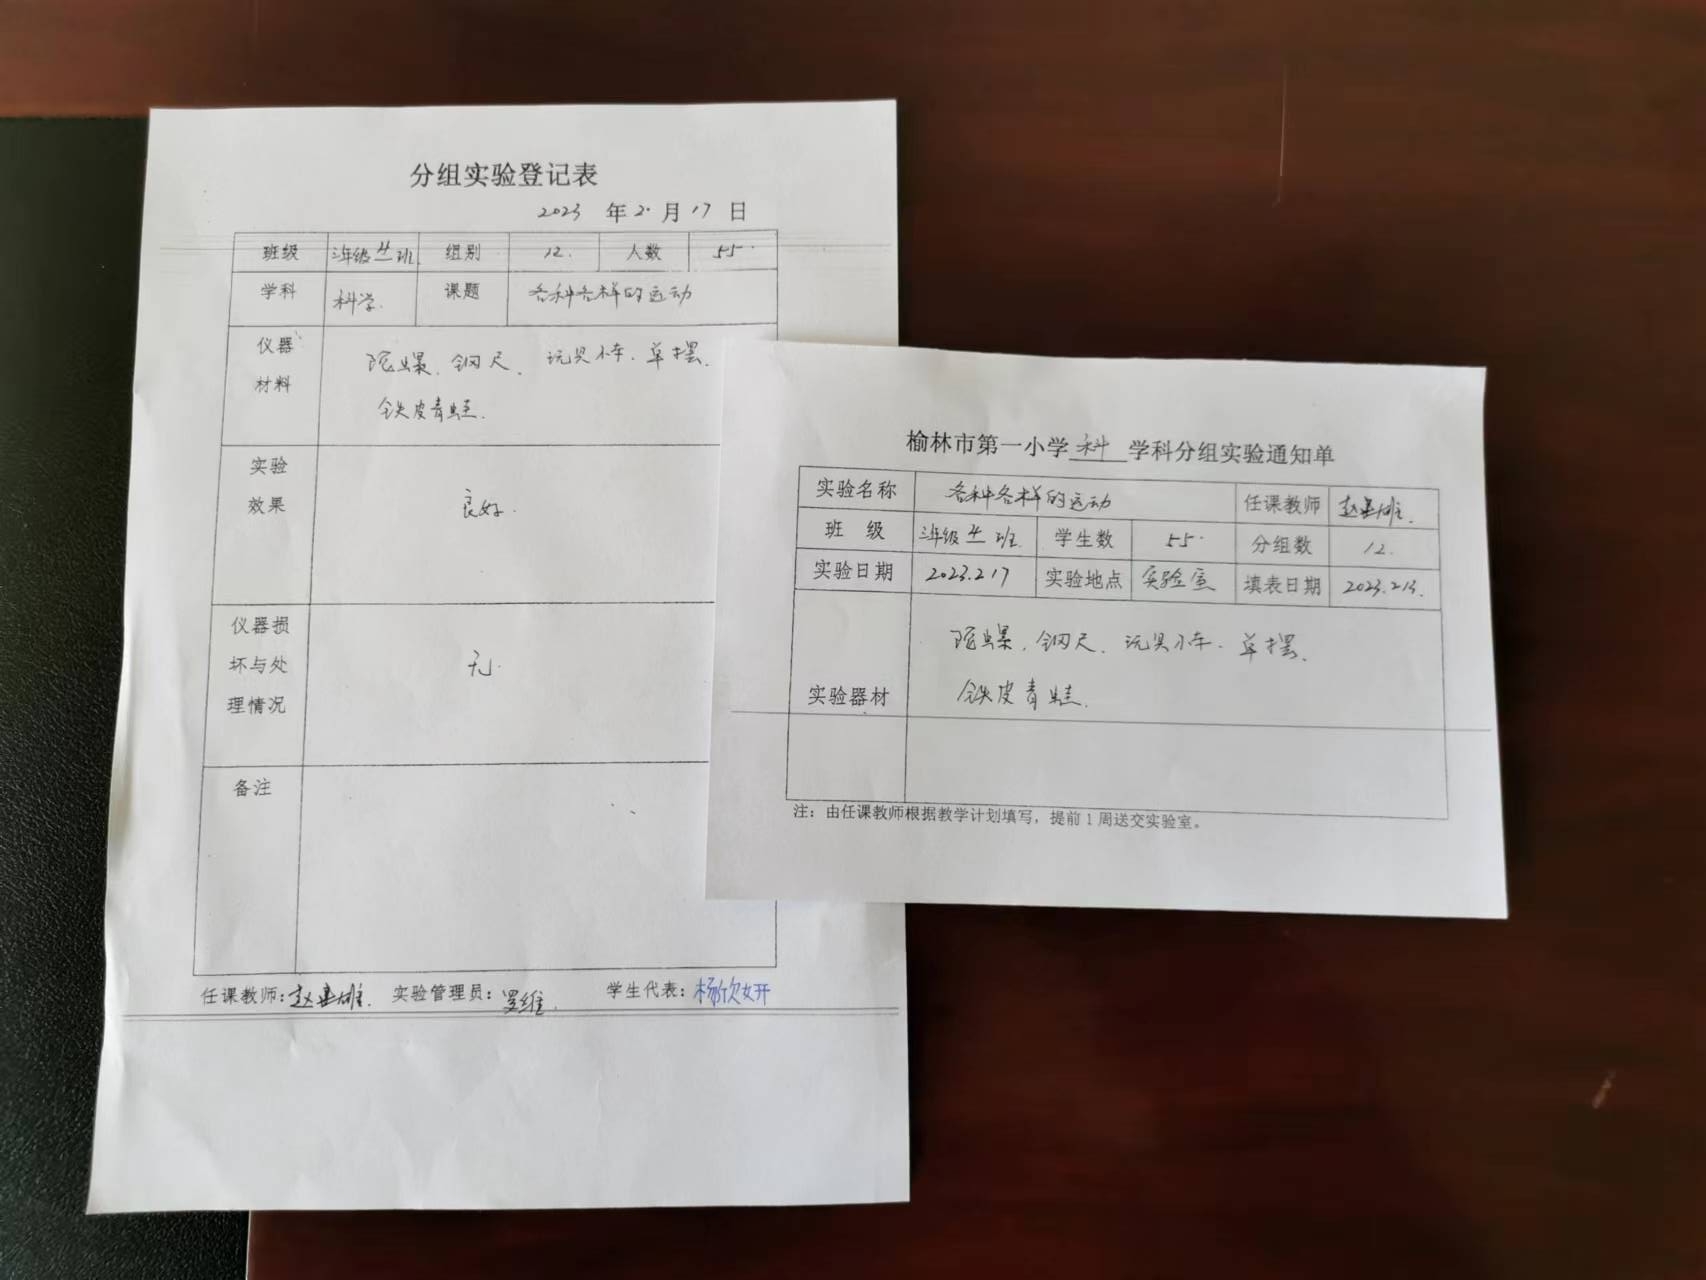 分组实验登记表
2023 年 2. 月 17 日
班级 三年级 4 班 组别 12. 人数 55.
学科 科学. 课题 各种各样的运动
仪器材料 陀螺、钢尺、玩具小车、单摆、
铁皮青蛙.
实验效果 良好.
仪器损坏与处理情况 无.
备注
任课教师: 实验管理员: 罗维. 学生代表: 杨欣妍
榆林市第一小学 科 学科分组实验通知单
实验名称 各种各样的运动 任课教师
班 级 三年级 4 班. 学生数 55. 分组数 12.
实验日期 2023.2.17 实验地点 实验室 填表日期 2023.2.13.
实验器材 陀螺、钢尺、玩具小车、单摆、
铁皮青蛙.
注: 由任课教师根据教学计划填写, 提前 1 周送交实验室。